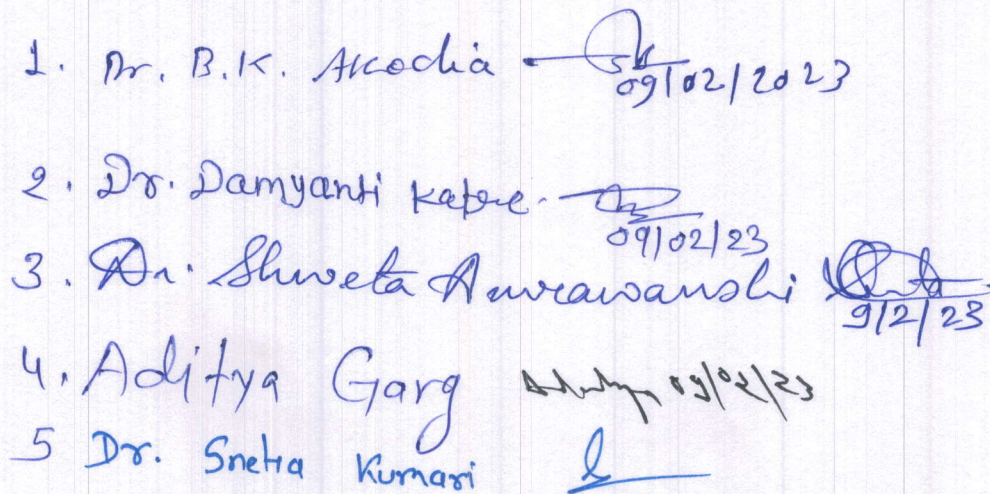 1. Dr. B.K. Akodia
09/02/2023
2. Dr. Damyanti Katre
09/02/23
3. Dr. Shweta
9/2/23
4. Aditya Garg 09/02/23
5 Dr. Sneha Kumari